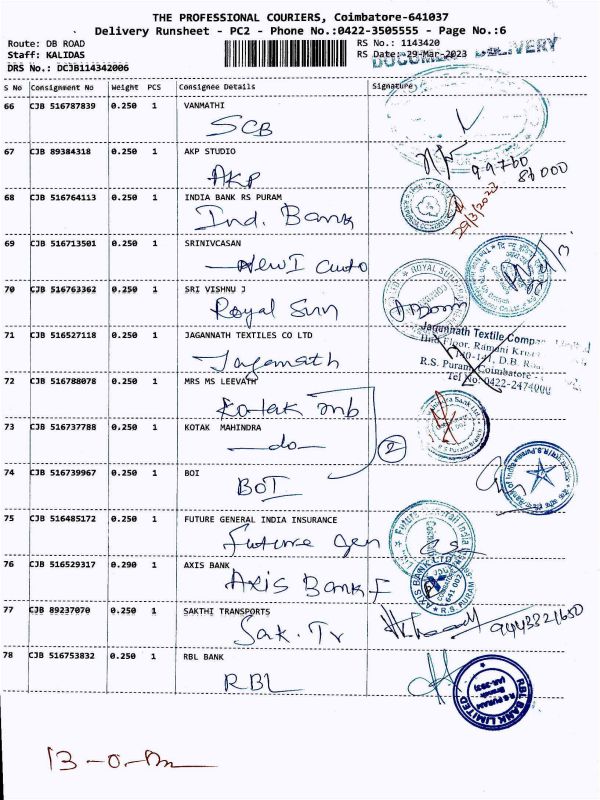 THE PROFESSIONAL COURIERS, Coimbatore-641037
Delivery Runsheet - PC2 - Phone No.:0422-3505555 - Page No.:6
Route: DB ROAD
RS No.: 1143420
Staff: KALIDAS
RS Date: 29-Mar-2023
DRS No.: DCJB114342006
DELIVERY
S No Consignment No Weight PCS Consignee Details Signature
66 CJB 516787839 0.250 1 VANMATHI
SCB
67 CJB 89384318 0.250 1 AKP STUDIO
AKP
99760
86000
68 CJB 516764113 0.250 1 INDIA BANK RS PURAM
Ind. Bank
29/3/2023
69 CJB 516713501 0.250 1 SRINIVCASAN
New I auto
70 CJB 516763362 0.250 1 SRI VISHNU J
Royal Sun
ROYAL SUN
71 CJB 516527118 0.250 1 JAGANNATH TEXTILES CO LTD
Jaganath
Jagannath Textile Company Limited
IInd Floor, Ramani
140-141, D.B.
R.S. Puram, Coimbatore
Tel No: 0422-2474000
72 CJB 516788078 0.250 1 MRS MS LEEVATH
Kotak mb
73 CJB 516737788 0.250 1 KOTAK MAHINDRA
—do—
2
R.S Puram Branch
74 CJB 516739967 0.250 1 BOI
BOI
75 CJB 516485172 0.250 1 FUTURE GENERAL INDIA INSURANCE
Future Gen
76 CJB 516529317 0.290 1 AXIS BANK
Axis Bank F
AXIS BANK LTD
641 002
R.S. PURAM
77 CJB 89237070 0.250 1 SAKTHI TRANSPORTS
Sak. Tr
9443321650
78 CJB 516753832 0.250 1 RBL BANK
RBL
RBL BANK LIMITED
R S PURAM
Branch